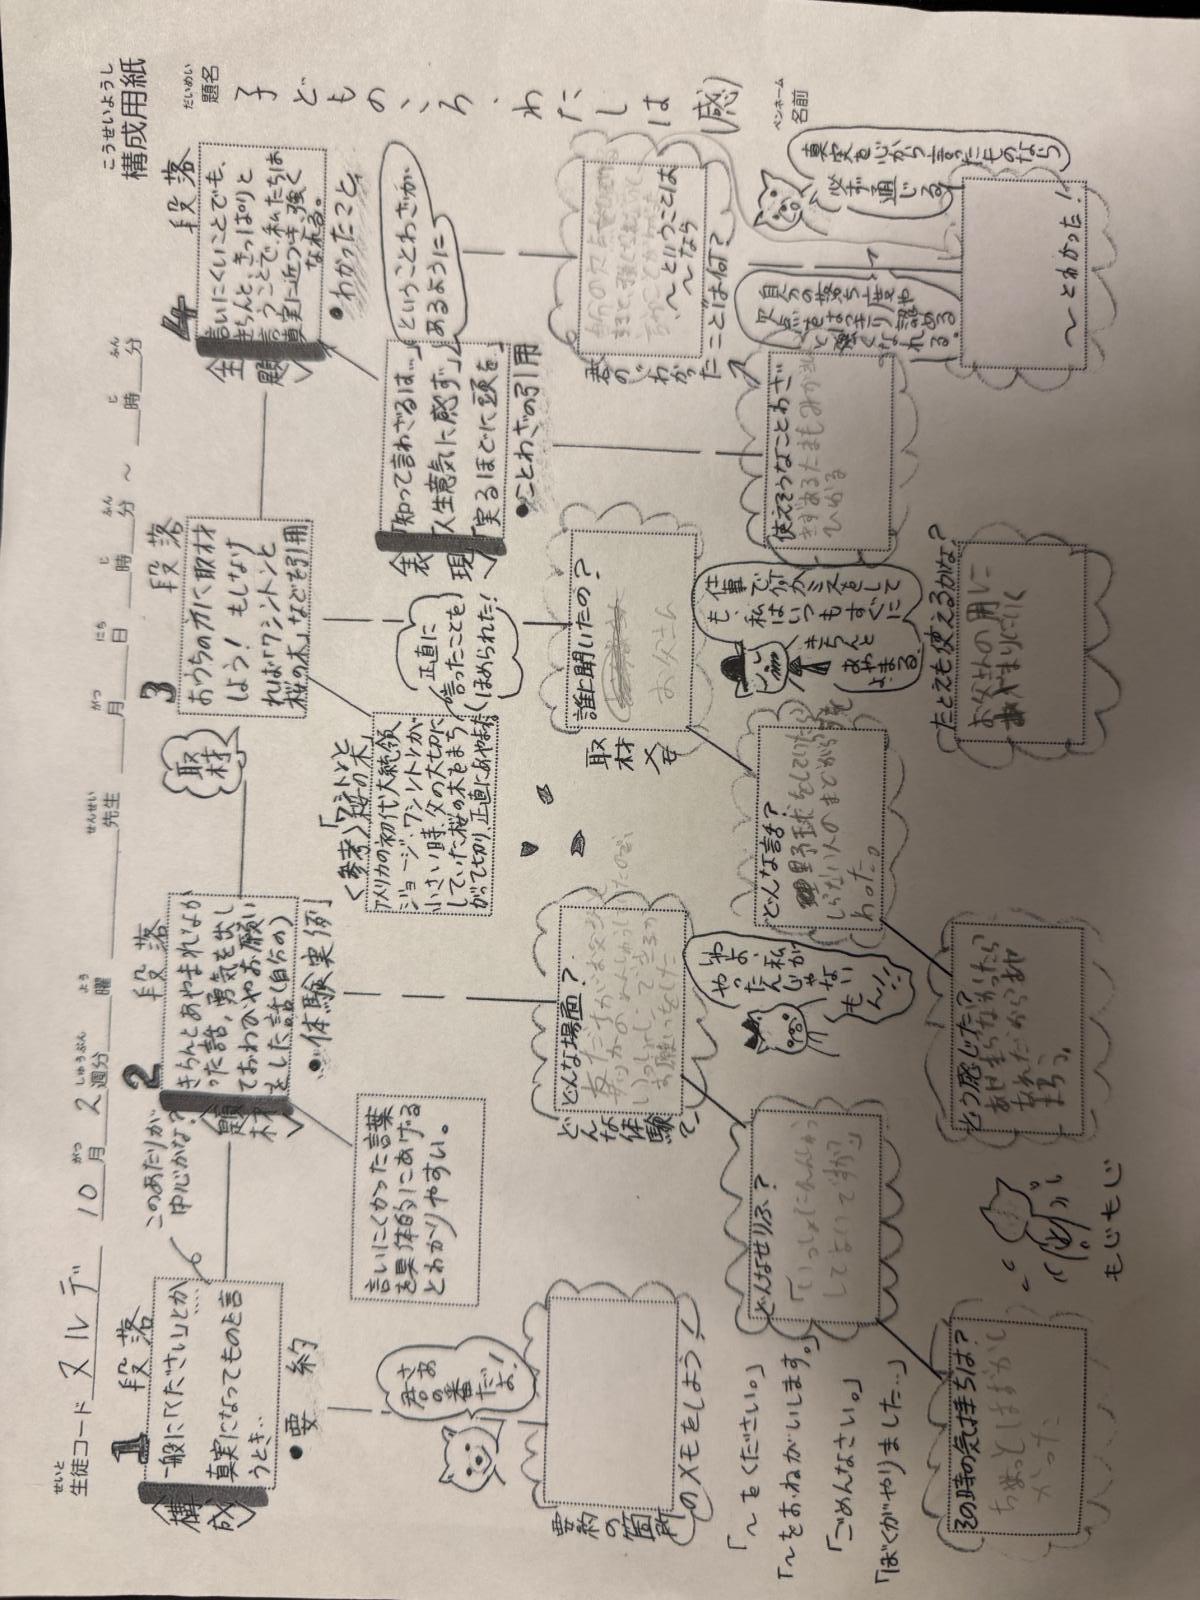 こうせいようし
構成用紙
だいめい
題名
子どものころ、わたしは(感)
ペンネーム
名前
せいと
生徒コード ヌルデ
10月 2週分 曜
がつ しゅうぶん よう
先生
せんせい
月 日 時 分 ～ 時 分
がつ にち じ ふん じ ふん
1 段落
〈構成〉
一般に「「ください」とか……
真実になってものを言うとき…
●要約
このあたりが
中心かな？
さあ
君の番
だよ！
要約の箇所
のメモをしよう！
「～をください。」
「～をおねがいします。」
「ごめんなさい。」
「ぼくがやりました…」
2 段落
〈題材〉
きちんとあやまれなか
った話,勇気を出し
ておわびやお願い
をした話(自分の)
●体験実例
言いにくかった言葉
を具体的にあげる
とわかりやすい。
どんな体験？
どんな場面？
どんなせりふ？
「いっしょに
してよいですか？」
その時の気持ちは？
ちょっとはずかし
かった
もじもじ
しゃ
わよ、私が
やったんじゃない
もん!!
どう感じた？
取材
3 段落
おうちの方に取材
しよう！もしなけ
れば「ワシントンと
桜の木」などを引用
〈参考〉「ワシントンと
桜の木」
アメリカの初代大統領
ジョージ・ワシントンが
小さい時、父の大切に
していた桜の木をまち
がって切り、正直にあやまる。
正直に
言ったことを
ほめられた！
取材メモ
誰に聞いたの？
お父さん
どんな話？
野球をしていたら
しらない人のまどガラスを
わった。
仕事で何かミスをして
も、私はいつもすぐに
きちんと
あやまる
よ。
たとえも使えるかな？
お父さんの用に
あやまりにいく
4 段落
〈主題〉
言いにくいことでも、
きちんと、きっぱりと
言うことで、私たちは
真実に近つき、強く
なれる。
●わかったこと
〈表現〉
「知って言わざるは…」
「人生意気に感ず」
「実るほどに頭を」
ということわざが
あるように
●ことわざの引用
使えそうなことわざ
きずあるたまもみがけば
ひかる
君の「わかった
こと」は何？
～ということは
～なら
自分の落ち度や
欠点をはっきり認める
と強くなれる。
真実を心から言ったものなら
必ず通じる。
～とわかった！